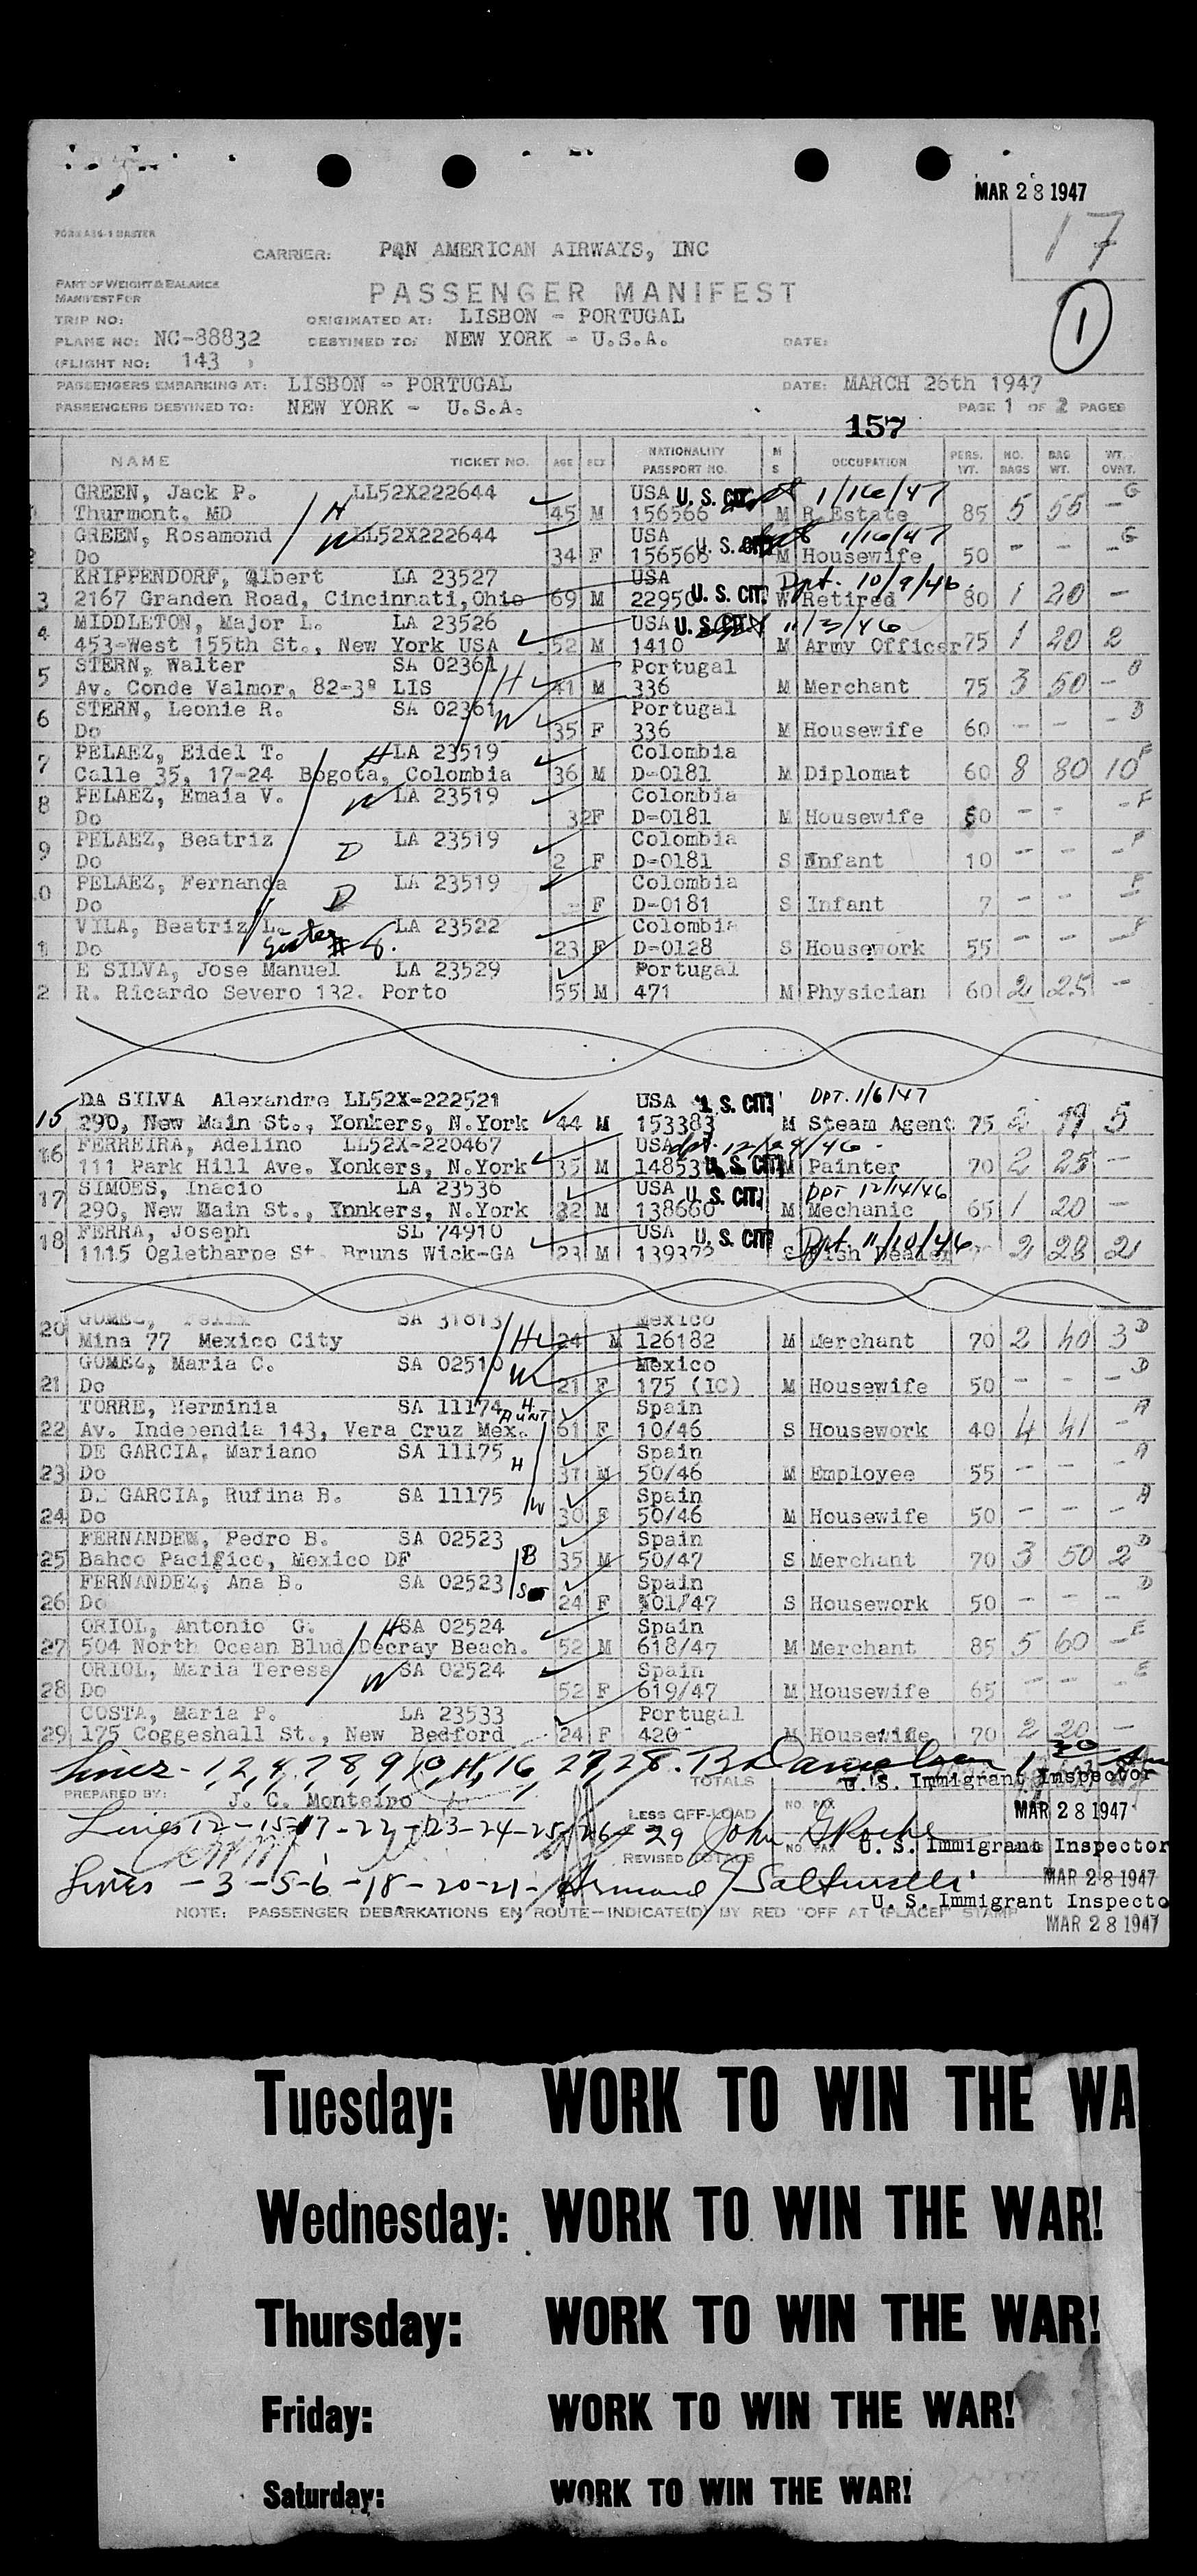 MAR 28 1947
FORM A16-1 MASTER
17
CARRIER: PAN AMERICAN AIRWAYS, INC
PART OF WEIGHT & BALANCE
MANIFEST FOR
PASSENGER MANIFEST
1
TRIP NO: ORIGINATED AT: LISBON - PORTUGAL
PLANE NO: NC-88832 DESTINED TO: NEW YORK - U.S.A. DATE:
(FLIGHT NO: 143 )
PASSENGERS EMBARKING AT: LISBON - PORTUGAL DATE: MARCH 26th 1947
PASSENGERS DESTINED TO: NEW YORK - U.S.A. PAGE 1 OF 2 PAGES
157
NAME TICKET NO. AGE SEX NATIONALITY PASSPORT NO. M S OCCUPATION PERS. WT. NO. BAGS BAG WT. WT. OVWT.
GREEN, Jack P. LL52X222644 USA U. S. CIT. 1/16/47 G
Thurmont. MD H 45 M 156566 M R.Estate 85 5 55 -
GREEN, Rosamond LL52X222644 USA 1/16/47 G
2 Do W 34 F 156566 U. S. CIT. M Housewife 50 - - -
KRIPPENDORF, Albert LA 23527 USA Dpt. 10/9/46
3 2167 Granden Road, Cincinnati,Ohio 69 M 22950 U. S. CIT. W Retired 80 1 20 -
MIDDLETON, Major L. LA 23526 USA U. S. CIT. 11/3/46
4 453-West 155th St., New York USA 52 M 1410 M Army Officer 75 1 20 2
STERN, Walter SA 02361 Portugal B
5 Av. Conde Valmor, 82-3º LIS H 41 M 336 M Merchant 75 3 50 -
STERN, Leonie R. SA 02361 Portugal B
6 Do W 35 F 336 M Housewife 60 - - -
PELAEZ, Eidel T. H LA 23519 Colombia F
7 Calle 35, 17-24 Bogota, Colombia 36 M D-0181 M Diplomat 60 8 80 10
PELAEZ, Emaia V. W LA 23519 Colombia F
8 Do 32F D-0181 M Housewife 50 - - -
PELAEZ, Beatriz LA 23519 Colombia F
9 Do D 2 F D-0181 S Infant 10 - - -
PELAEZ, Fernanda LA 23519 Colombia F
0 Do D - F D-0181 S Infant 7 - - -
VILA, Beatriz L. LA 23522 Colombia F
1 Do Sister # 8. 23 F D-0128 S Housework 55 - - -
E SILVA, Jose Manuel LA 23529 Portugal
2 R. Ricardo Severo 132. Porto 55 M 471 M Physician 60 2 25 -
DA SILVA Alexandre LL52X-222521 USA U. S. CIT. DPT. 1/6/47
15 290, New Main St., Yonkers, N.York 44 M 153383 M Steam Agent 75 2 79 5
FERREIRA, Adelino LL52X-220467 USA dpt. 12/29/46 -
16 111 Park Hill Ave. Yonkers, N.York 35 M 14853 U. S. CIT. M Painter 70 2 25 -
SIMOES, Inacio LA 23536 USA U. S. CIT. DPT 12/14/46
17 290, New Main St., Ynnkers, N.York 32 M 138660 M Mechanic 65 1 20 -
FERRA, Joseph SL 74910 USA U. S. CIT. Dpt. 11/10/46
18 1115 Ogletharpe St. Bruns Wick-GA 23 M 139372 S Fish Dealer 2 28 21
GOMEZ, Felix SA 31813 Mexico D
20 Mina 77 Mexico City H 24 M 126182 M Merchant 70 2 40 3
GOMEZ, Maria C. SA 02510 Mexico D
21 Do W 21 F 175 (IC) M Housewife 50 - - -
TORRE, Herminia SA 11174 H AUNT Spain A
22 Av. Independia 143, Vera Cruz Mex. 61 F 10/46 S Housework 40 4 41
DE GARCIA, Mariano SA 11175 Spain A
23 Do H 37 M 50/46 M Employee 55 - - -
DE GARCIA, Rufina B. SA 11175 Spain A
24 Do W 30 F 50/46 M Housewife 50 - - -
FERNANDEM, Pedro B. SA 02523 Spain D
25 Bahco Pacifico, Mexico DF B 35 M 50/47 S Merchant 70 3 50 2
FERNANDEZ, Ana B. SA 02523 Spain D
26 Do 24 F 501/47 S Housework 50 - - -
ORIOL, Antonio G. H SA 02524 Spain E
27 504 North Ocean Blud Decray Beach. 52 M 618/47 M Merchant 85 5 60 -
ORIOL, Maria Teresa W SA 02524 Spain E
28 Do 52 F 619/47 M Housewife 65 - - -
COSTA, Maria P. LA 23533 Portugal
29 175 Coggeshall St., New Bedford 24 F 420 M Housewife 70 2 20 -
Lines - 1, 2, 4, 7, 8, 9, 10, 11, 16, 27, 28.
TOTALS U. S. Immigrant Inspector
PREPARED BY: J. C. Monteiro
LESS OFF-LOAD NO. PAX MAR 28 1947
Lines 12-15-17-22-23-24-25-26-29 John G Roche
REVISED TOTALS NO. PAX U. S. Immigrant Inspector
MAR 28 1947
Lines - 3-5-6-18-20-21-
U. S. Immigrant Inspecto
NOTE: PASSENGER DEBARKATIONS EN ROUTE—INDICATE(D) BY RED "OFF AT (PLACE)" STAMP
MAR 28 1947
Tuesday: WORK TO WIN THE WA
Wednesday: WORK TO WIN THE WAR!
Thursday: WORK TO WIN THE WAR!
Friday: WORK TO WIN THE WAR!
Saturday: WORK TO WIN THE WAR!